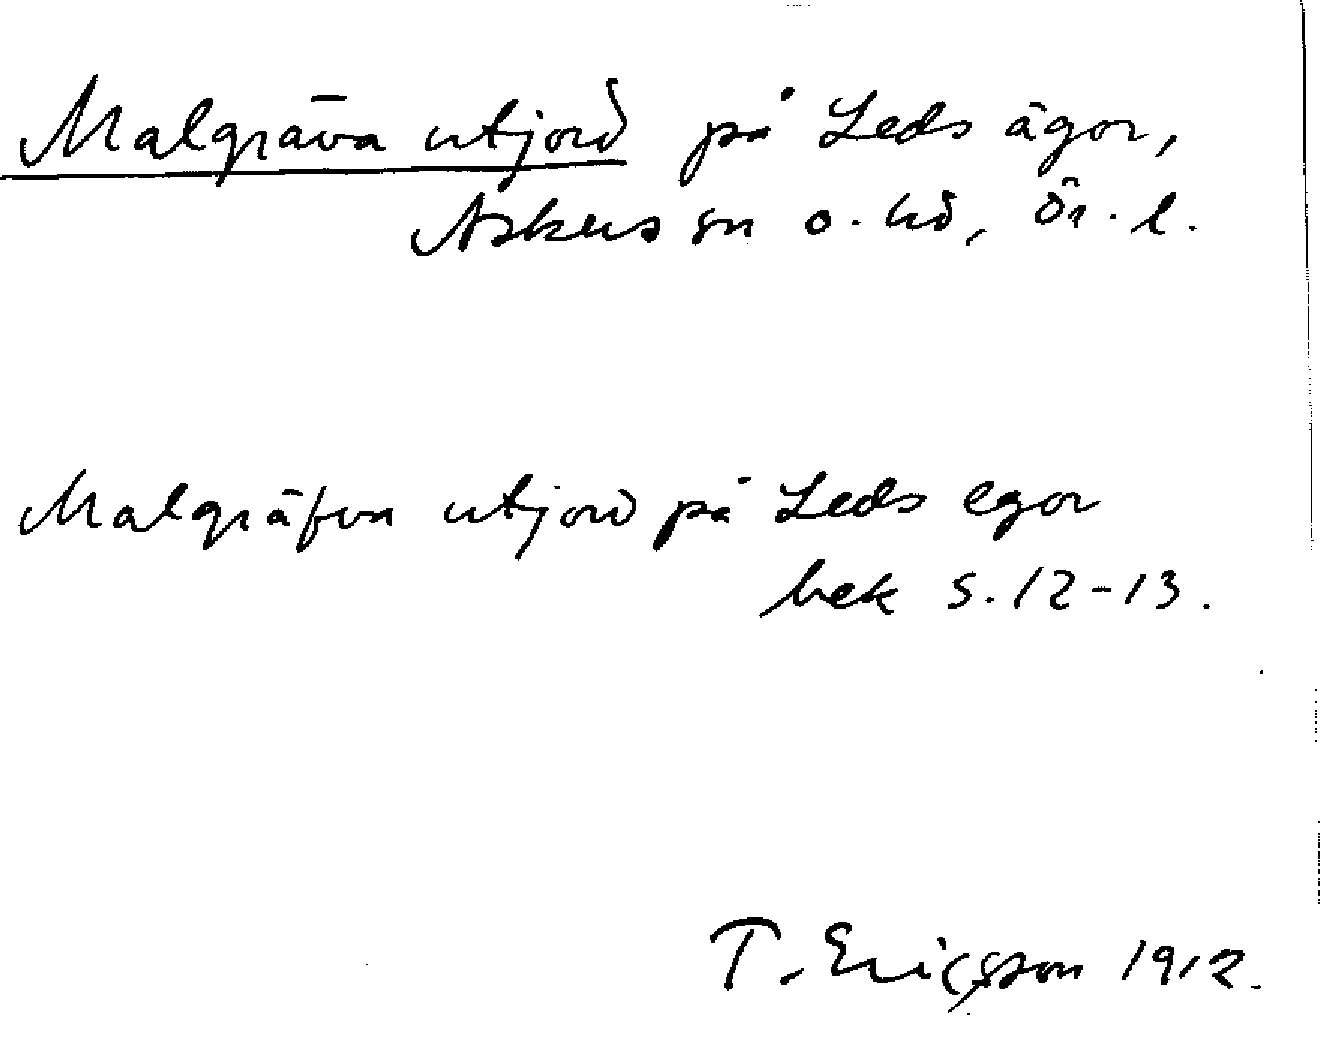 Malgräva utjord på Leds ägor,
Askers sn o. hd, Ör. l.
Malgräfva utjord på Leds egor
bek s. 12-13.
T. Ericsson 1912.